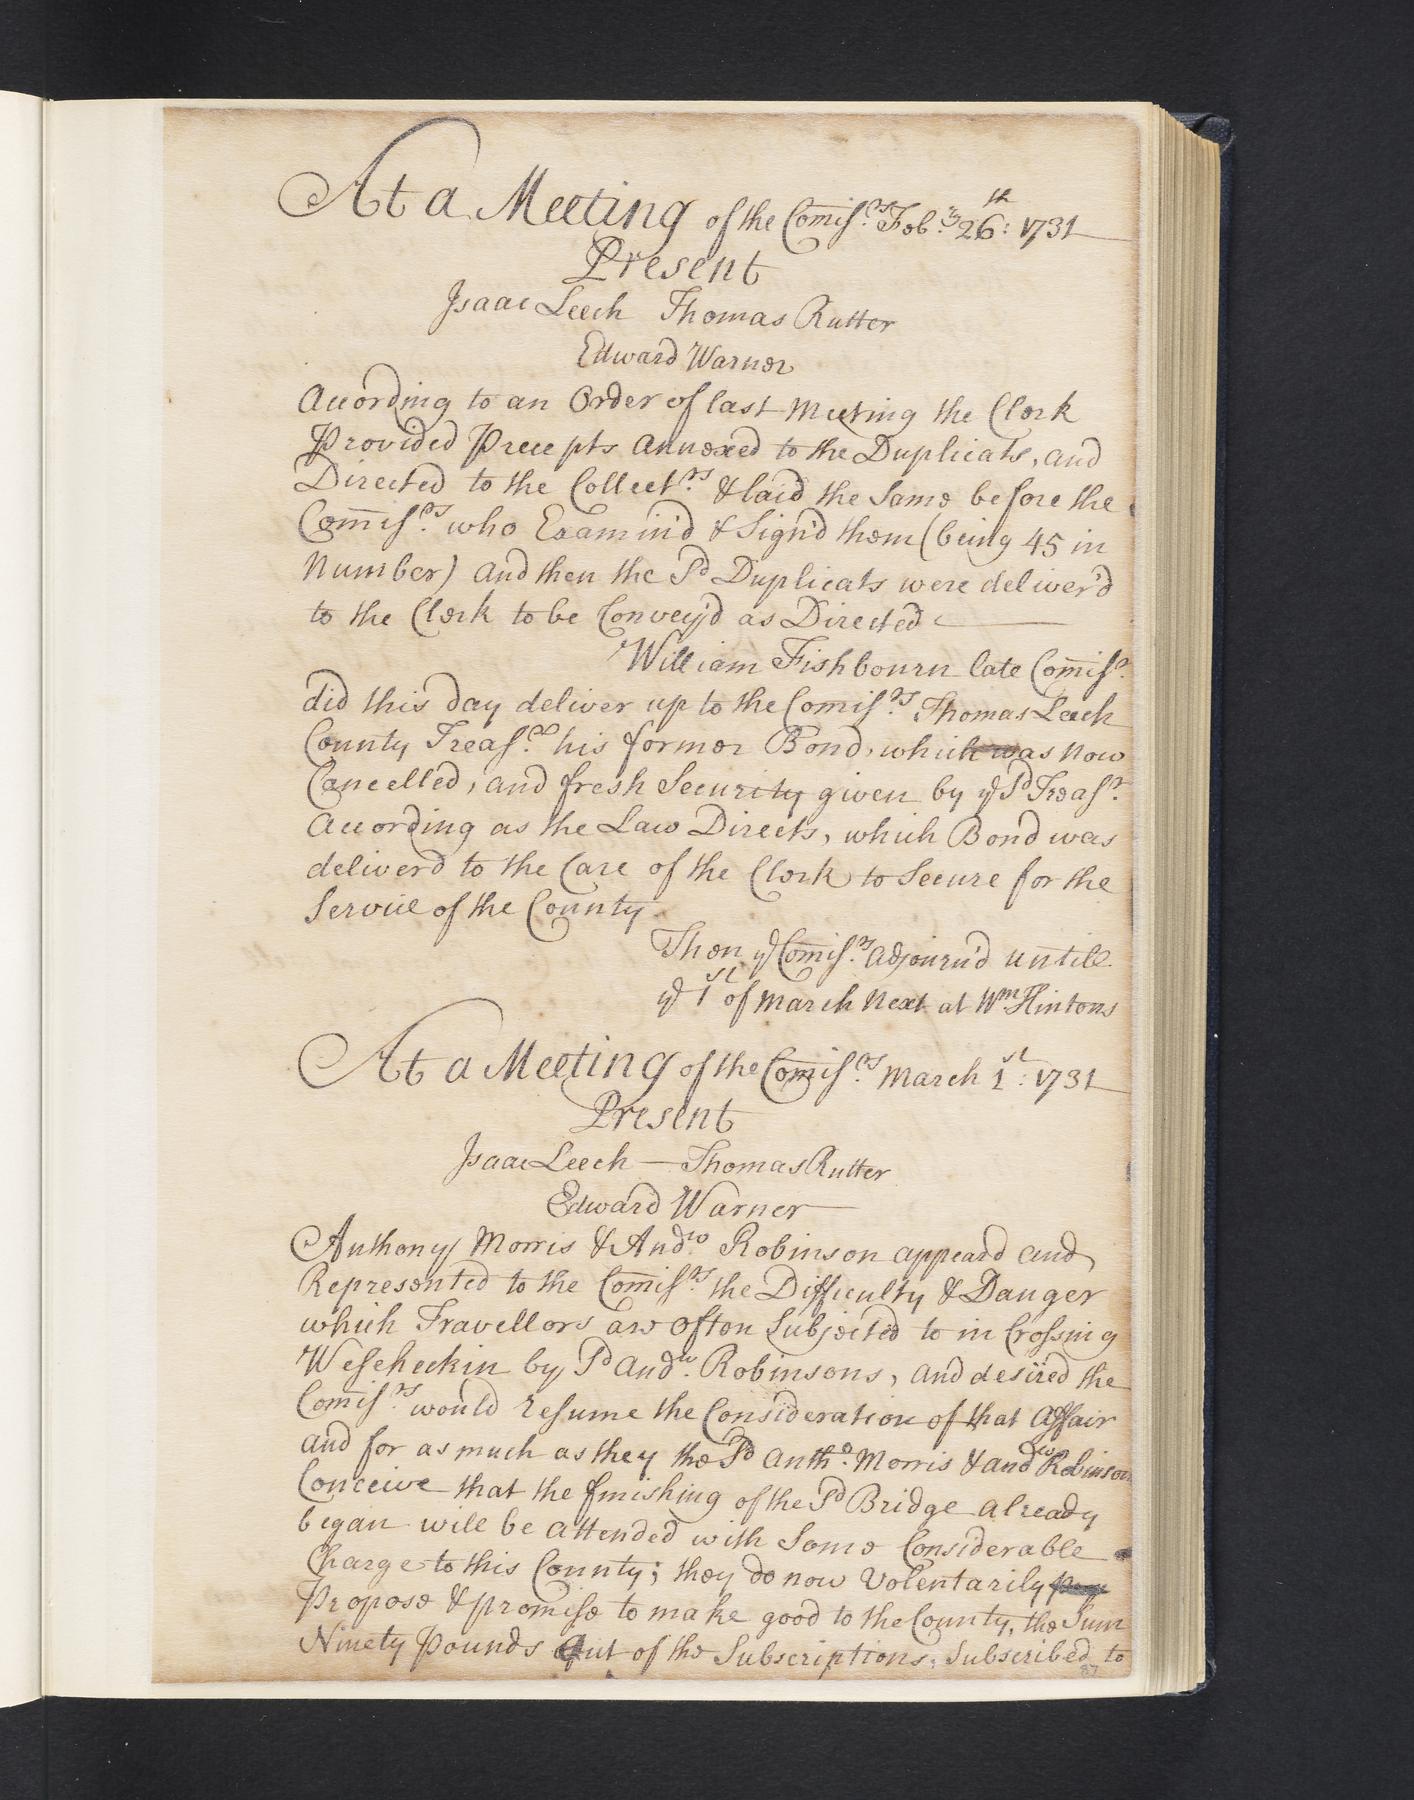 At a Meeting of the Comis.rs Feb.ry 26th: 1731
Present
Isaac Leech Thomas Rutter
Edward Warner
According to an Order of last Meeting the Clerk
Provided Precepts Annexed to the Duplicats, and
Directed to the Collect.rs & laid the Same before the
Comis.rs who Examin'd & Sign'd them (being 45 in
Number) and then the Sd Duplicats were deliver'd
to the Clerk to be Convey'd as Directed
William Fishbourn late Comis.r
did this day deliver up to the Comis.rs Thomas Leech
County Treas.rs his former Bond, which was now
Cancelled, and fresh Security given by ye Sd Treas.r
According as the Law Directs, which Bond was
deliverd to the Care of the Clerk to Secure for the
Service of the County
Then ye Comis.rs Adjourn'd untill
ye 1st of March Next at Wm Hintons
At a Meeting of the Comis.rs March 1st: 1731
Present
Isaac Leech — Thomas Rutter
Edward Warner
Anthony Morris & Andw. Robinson appeard and
Represented to the Comis.rs the Difficulty & Danger
which Travellors are Often Subjected to in Crossing
Weseheckin by Sd Andw. Robinsons, and desired the
Comis.rs would resume the Consideration of that Affair
and for as much as they the Sd Antho. Morris & Andw Robinson
Conceive that the finishing of the Sd Bridge already
began will be attended with Some Considerable
Charge to this County; they do now Volentarily
Propose & promise to make good to the County, the Sum
Ninety Pounds Out of the Subscriptions, Subscribed to
87